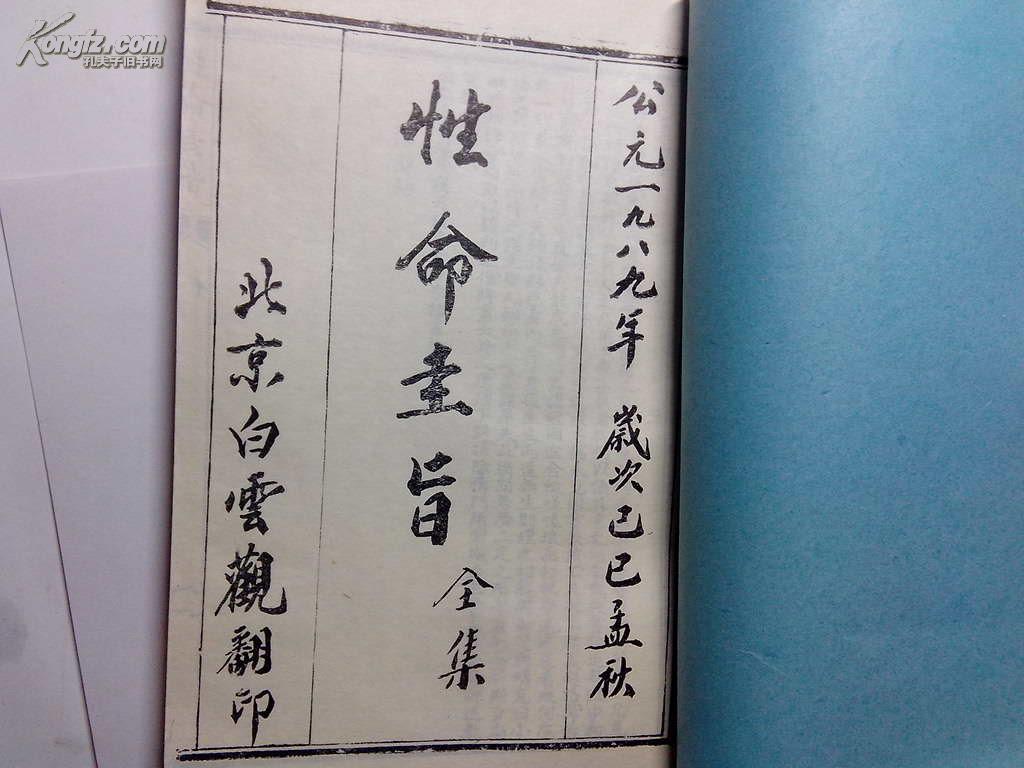 公元一九八九年 歲次己巳孟秋
性命圭旨 全集
北京白雲觀翻印
Kongfz.com
孔夫子旧书网